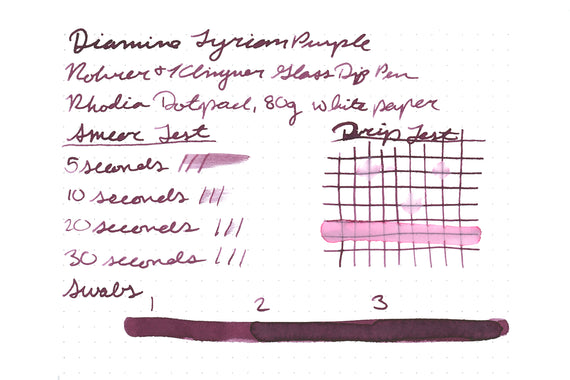 Diamine Tyrian Purple
Rohrer & Klingner Glass Dip Pen
Rhodia Dotpad, 80g white paper
Smear Test
Drip Test
5 seconds
10 seconds
20 seconds
30 seconds
Swabs
1 2 3